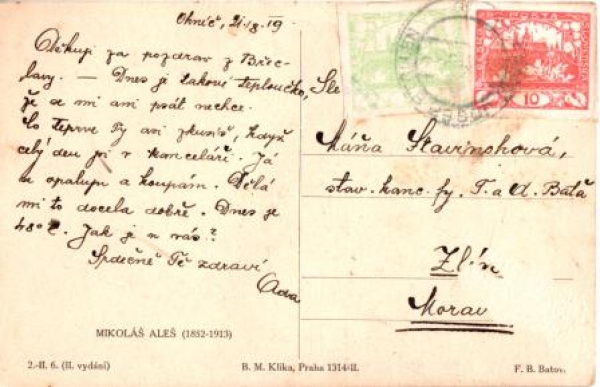 Ohníč, 21./8. 19
Děkuji za pozdrav z Břec-
lavy. — Dnes je takové teploučko,
že se mi ani psát nechce.
Co teprve Ty asi zkusíš, když
celý den jsi v kanceláři. Já
se opaluju a koupám. Dělá
mi to docela dobře. Dnes je
48°C. Jak je u vás?
Srdečně Tě zdraví
Ada
MIKOLÁŠ ALEŠ (1852-1913)
2.-II. 6. (II. vydání)
B. M. Klika, Praha 1314-II.
F. B. Batov.
10
Sle
Máňa Stavinohová,
stav. kanc. fy. T. a A. Baťa
Zlín
Morav